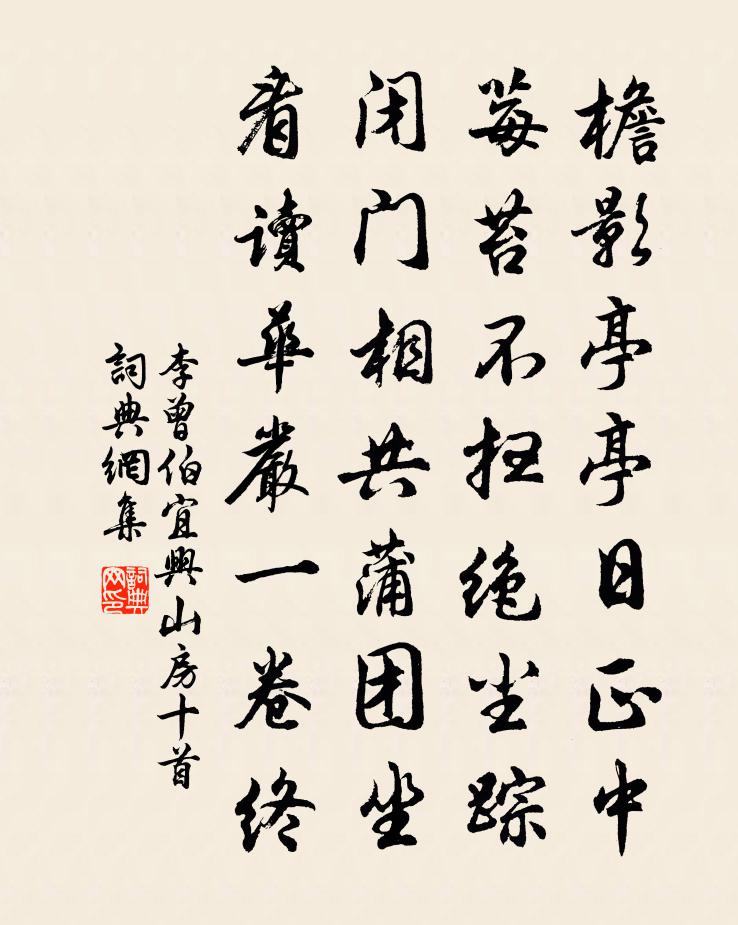 檐影亭亭日正中
莓苔不扫绝尘踪
闭门相共蒲团坐
看读华严一卷终
李曾伯宜興山房十首
詞典網集
詞典网印